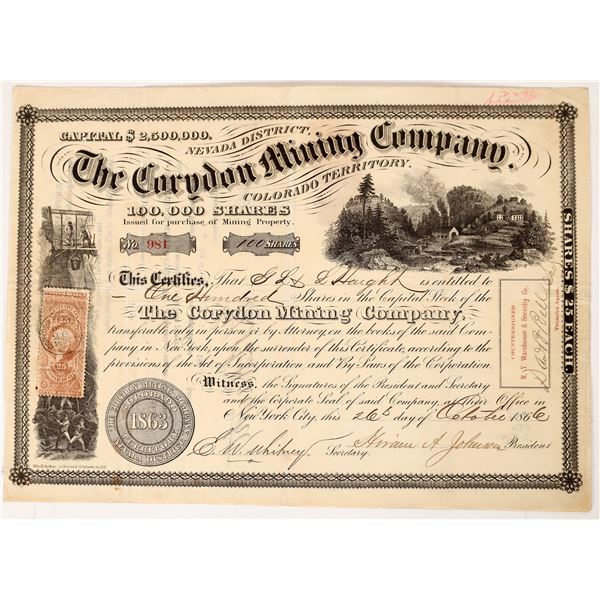 CAPITAL $2,500,000.
NEVADA DISTRICT.
The Corydon Mining Company.
COLORADO TERRITORY.
100,000 SHARES
Issued for purchase of Mining Property.
No. 981
100 SHARES
This Certifies, That G L & D Haight is entitled to
One Hundred Shares in the Capital Stock of the
The Corydon Mining Company,
transferable only in person or by Attorney on the books of the said Com-
pany in New York, upon the surrender of this Certificate, according to the
provisions of the Act of Incorporation and By Laws of the Corporation.
Witness, the Signatures of the President and Secretary
and the Corporate Seal of said Company, at their Office in
New York City, this 26th day of October 1866
E. W. Whitney Secretary.
Hiram A. Johnson President
SHARES $25 EACH.
COUNTERSIGNED
N.Y. Warehouse & Security Co.
Transfer Agent.
25
25
1863
COLORADO
NEVADA DISTRICT